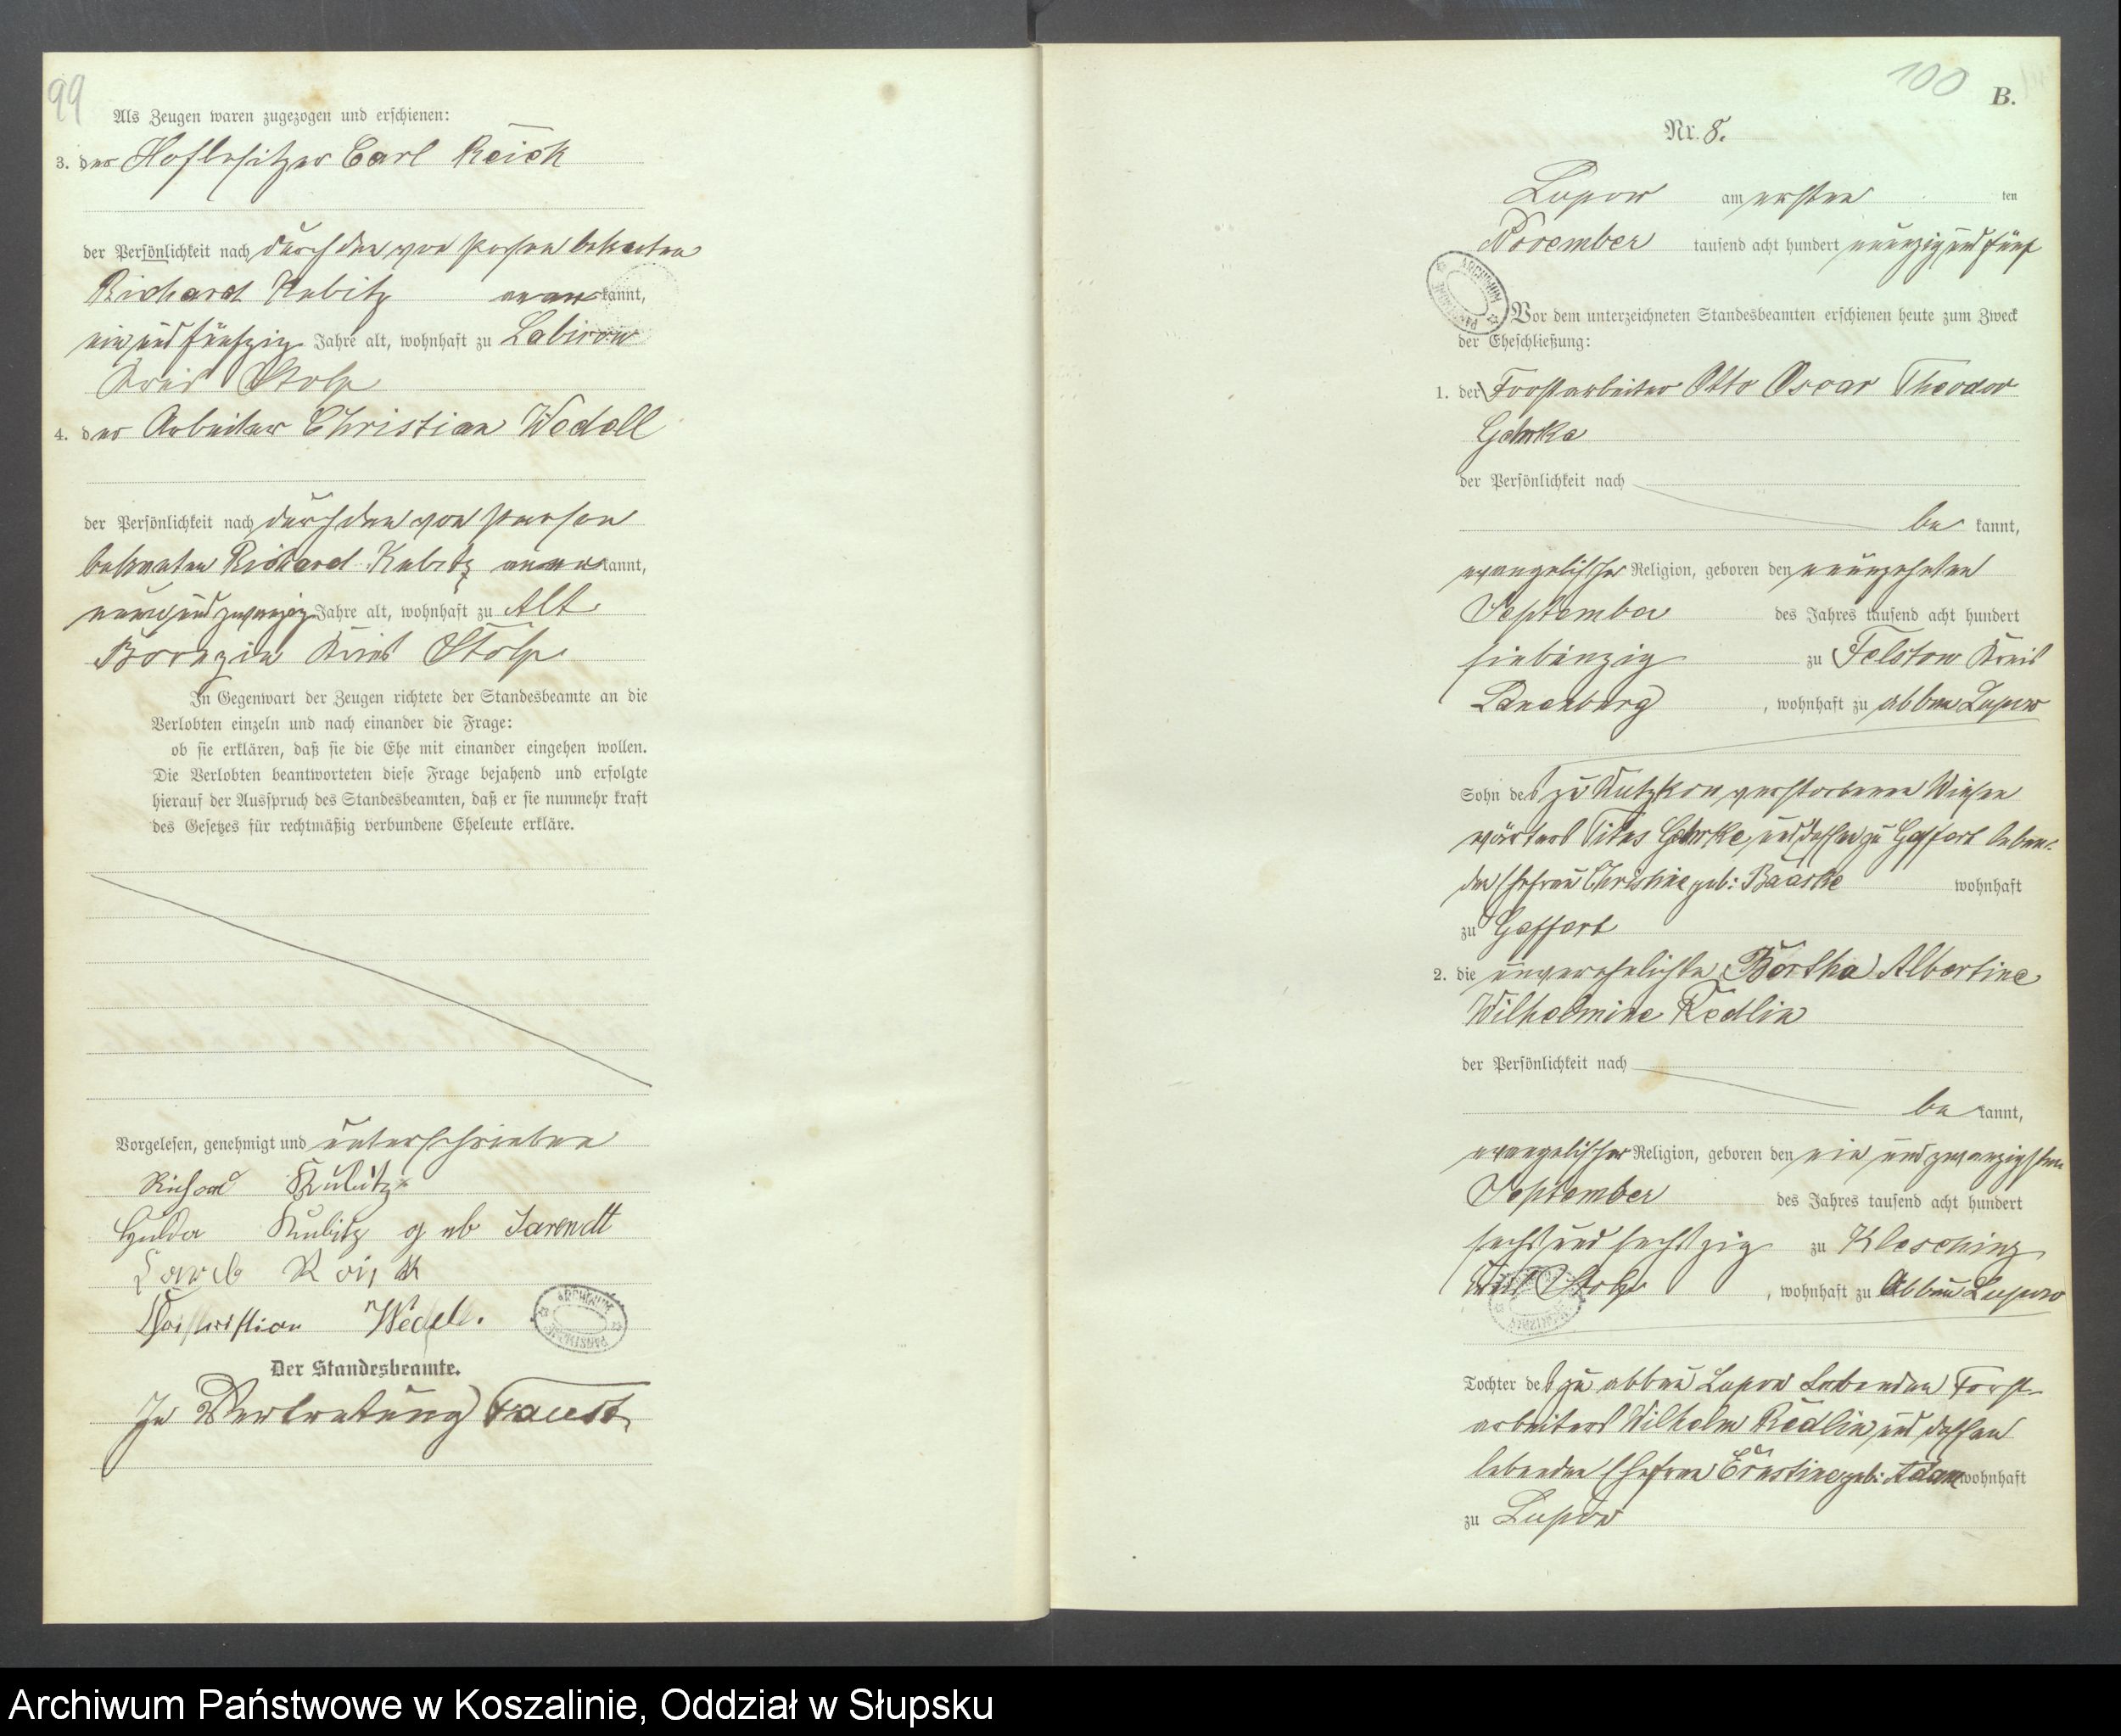 99
Als Zeugen waren zugezogen und erschienen:
3. der Hofbesitzer Carl Reick
der Persönlichkeit nach durch den von Person bekannten
Richard Kubitz anerkannt,
ein und fünfzig Jahre alt, wohnhaft zu Labuow
Kreis Stolp
4. der Arbeiter Christian Wedell
der Persönlichkeit nach durch den von Person
bekannten Richard Kubitz anerkannt,
neun und zwanzig Jahre alt, wohnhaft zu Alt
Kreis Stolp
In Gegenwart der Zeugen richtete der Standesbeamte an die
Verlobten einzeln und nach einander die Frage:
ob sie erklären, daß sie die Ehe mit einander eingehen wollen.
Die Verlobten beantworteten diese Frage bejahend und erfolgte
hierauf der Ausspruch des Standesbeamten, daß er sie nunmehr kraft
des Gesetzes für rechtmäßig verbundene Eheleute erkläre.
Vorgelesen, genehmigt und unterschrieben
Richard Kubitz
Hulda Kubitz geb Jarendt
Christian Wedell.
Der Standesbeamte.
In Vertretung Faust
100
B.
Nr. 8.
Lupow am ersten ten
November tausend acht hundert neunzig und fünf
Vor dem unterzeichneten Standesbeamten erschienen heute zum Zweck
der Eheschließung:
1. der Forstarbeiter Otto Oscar Theodor
Gehrke
der Persönlichkeit nach
be kannt,
evangelischer Religion, geboren den neunzehnten
September des Jahres tausend acht hundert
siebenzig zu Felstow Kreis
Lauenburg, wohnhaft zu abbau Lupow
Sohn des zu Wutzkow verstorbenen Wiesen
wärters Titus Gehrke, und dessen zu Gaffert leben-
den Ehefrau Christine geb: Baaske wohnhaft
zu Gaffert
2. die unverehelichte Bertha Albertine
Wilhelmine Redlin
der Persönlichkeit nach
be kannt,
evangelischer Religion, geboren den ein und zwanzigsten
September des Jahres tausend acht hundert
sechs und sechszig zu Kleschinz
Kreis Stolp, wohnhaft zu Abbau Lupow
Tochter des zu abbau Lupow lebenden Forst-
arbeiters Wilhelm Redlin und dessen
lebenden Ehefrau Ernstine geb: Adam wohnhaft
zu Lupow
ARCHIWUM PAŃSTWOWE
Archiwum Państwowe w Koszalinie, Oddział w Słupsku